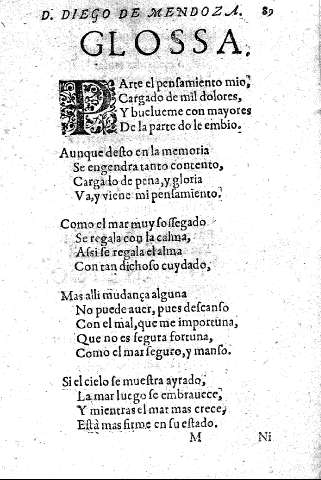 D. DIEGO DE MENDOZA. 89
GLOSSA.
PArte el pensamiento mio,
Cargado de mil dolores,
Y buelueme con mayores
De la parte do le embio.
Aunque desto en la memoria
Se engendra tanto contento,
Cargado de pena, y gloria
Va, y viene mi pensamiento.
Como el mar muy sossegado
Se regala con la calma,
Assi se regala el alma
Con tan dichoso cuydado,
Mas alli mudança alguna
No puede auer, pues descanso
Con el mal, que me importuna,
Que no es segura fortuna,
Como el mar seguro, y manso.
Si el cielo se muestra ayrado,
La mar luego se embrauece,
Y mientras el mar mas crece,
Està mas firme en su estado.
M Ni